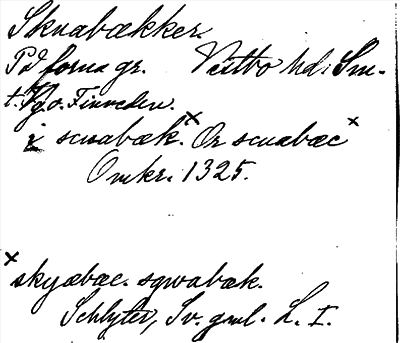 Skuabækker.
På forna gr. Västbo hd. Sm.
t. Jfo. Finveden.
i scuabæk.x Or scuabæc x
Omkr. 1325.
x skyæbæc. sqwabæk.
Schlyter, Sv. gml. L. I.